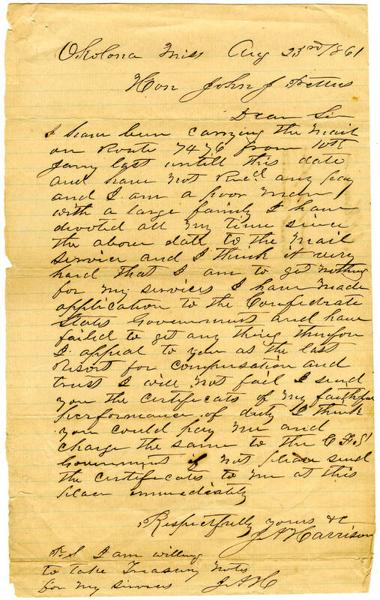 Okolona Miss Aug 23rd 1861
Hon John J Pettus
Dear Sir
I have been carrying the mail
on Route 7476 from 10th
Jany last untill this date
and have not Rec'd any pay
and I am a poor man
with a large family I have
devoted all my time since
the above date to the mail
service and I think it very
hard that I am to get nothing
for my services I have made
application to the Confederate
States Government and have
failed to get any thing therefor
I appeal to you as the last
resort for compensation and
trust I will not fail I send
you the certificate of my faithful
performance of duty I think
you could pay me and
charge the same to the C. S.
Government if not please send
the certificates to me at this
place immediately
Respectfully yours &c
J A Harrison
P.S I am willing
to take Treasury notes
for my services J A H